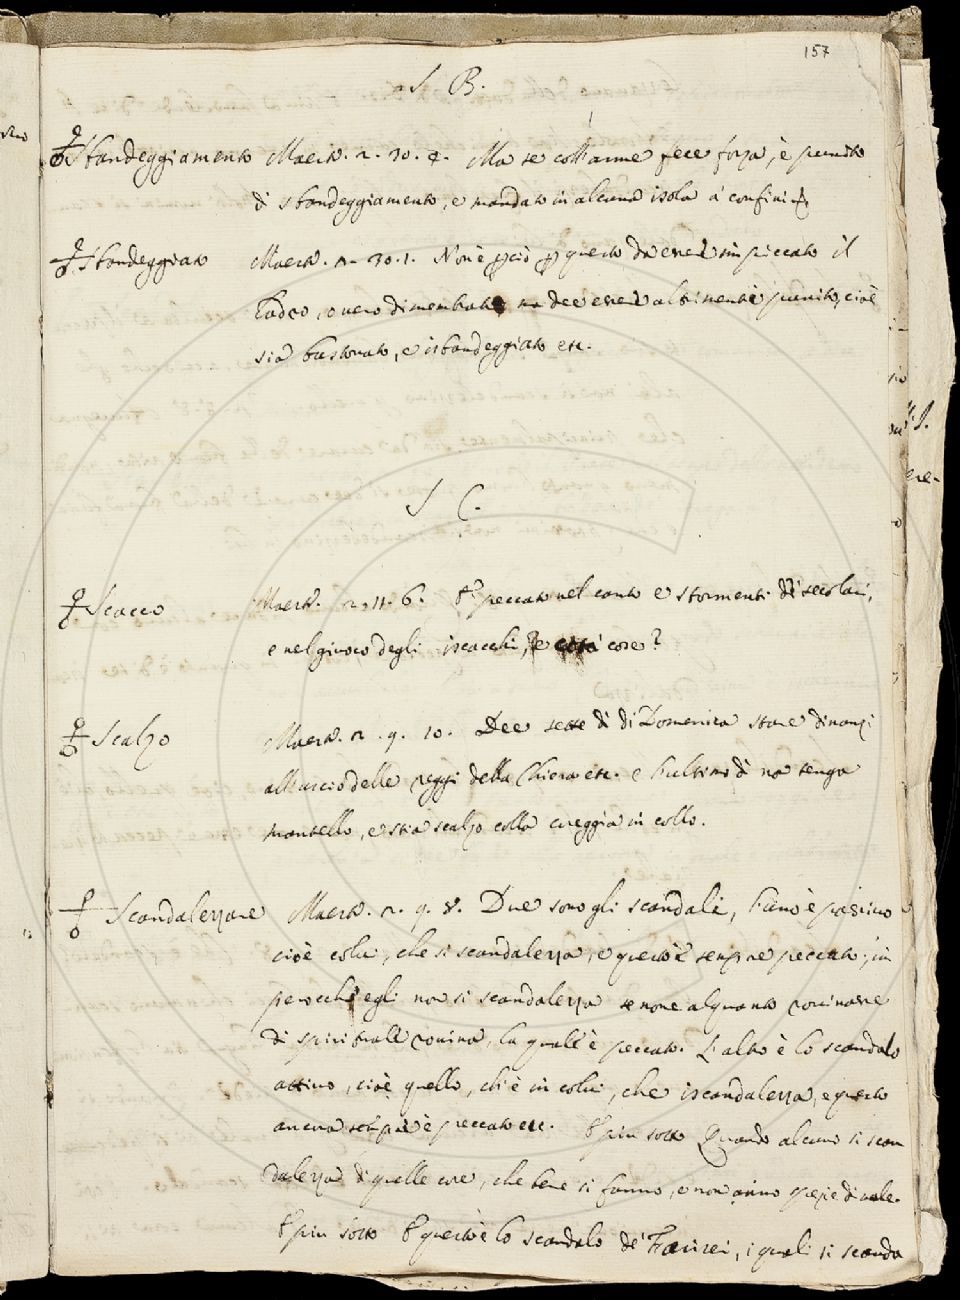 157
S B.
Sbandeggiamento Maestr. 2. 30. 4. Ma se coll'arme fece forza, è punito
di sbandeggiamento, e mandato in alcuna isola a' confini
Sbandeggiato Maestr. 2. 30. 1. Non è però per questo da essere impiccato il
ladro, o vero dimembrato ma dee essere altrimenti punito, cioè
sia bastonato, e isbandeggiato etc.
S C.
Scacco Maestr. 2. 11. 6. È peccato nel canto e stormenti di secolari,
e nel giuoco degli iscacchi, e cose?
Scalzo Maestr. 2. 9. 10. Dee sette dì di Domenica stare dinanzi
all'uscio delle reggi della Chiesa etc. e l'ultimo dì no tenga
mantello, e stia scalzo colla coreggia in collo.
Scandalezzare Maestr. 2. 9. 8. Due sono gli scandali, l'uno è passivo
cioè colui, che si scandalezza, e questo è sempre peccato; in
perocché egli non si scandalezza se none alquanto rovinare
di spirituale rovina, la quale è peccato. L'altro è lo scandalo
attivo, cioè quello, ch'è in colui, che iscandalezza, e questo
ancora sempre è peccato etc. E più sotto Quando alcuno si scan
dalezza di quelle cose, che bene si fanno, e non anno spezie di male.
E più sotto E questo è lo scandalo de' Farisei, i quali si scanda